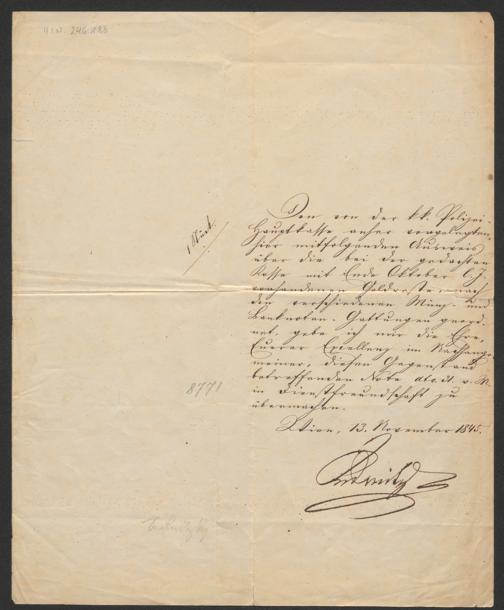 H.I.N. 246.883
1 Stück
Den von der k.k. Polizei-
Hauptkasse anher vorgelegten,
hier mitfolgenden Ausweis
über die bei der gedachten
Kasse mit Ende Oktober l. J.
vorhandenen Geldreste, nach
den verschiedenen Münz- und
Banknoten-Gattungen geord-
net, gebe ich mir die Ehre,
Euerer Excellenz im Nachhange
meiner, diesen Gegenstand
betreffenden Note ddo. v. M.
in Dienstfreundschaft zu
übermachen.
8771
Wien, 13. November 1845.
Sedlnitzky